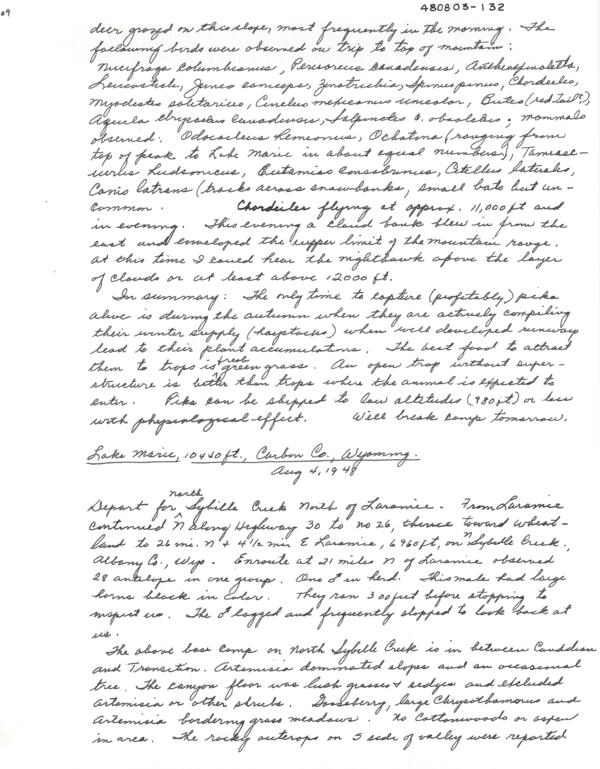 09
480803-132
deer grazed on this slope, most frequently in the morning. The
following birds were observed on trip to top of mountain:
Nucifraga columbianus, Perisoreus canadensis, Anthus spinoletta,
Leucosticte, Junco caniceps, Zonotrichia, Spinus pinus, Chordeiles,
Myadestes solitarius, Cinclus mexicanus unicolor, Buteo (red tail?),
Aquila chrysaetos canadensis, Salpinctes o. obsoletus; mammals
observed: Odocoileus hemionus, Ochotona (ranging from
top of peak to Lake Marie in about equal numbers), Tamias-
ciurus hudsonicus, Eutamias consobrinus, Citellus lateralis,
Canis latrans (tracks across snowbanks, small bats but un-
common. Chordeiles flying at approx. 11,000 ft and
in evening. This evening a cloud bank blew in from the
east and enveloped the upper limit of the mountain range.
At this time I could hear the nighthawk above the layer
of clouds or at least above 12000 ft.
In summary: The only time to capture (profitably) pika
alive is during the autumn when they are actively compiling
their winter supply (haystacks) when well developed runways
lead to their plant accumulations. The best food to attract
them to traps is fresh green grass. An open trap without super-
structure is better than traps where the animal is expected to
enter. Pika can be shipped to low altitudes (980 ft) or less
with physiological effect. Will break camp tomorrow.
Lake Marie, 10440 ft., Carbon Co., Wyoming.
Aug 4, 1948
Depart for north Sybille Creek North of Laramie. From Laramie
continued N along Highway 30 to no 26, thence toward Wheat-
land to 26 mi. N & 4 1/2 mi E Laramie, 6960 ft, on N Sybille Creek,
Albany Co., Wyo. Enroute at 21 miles N of Laramie observed
28 antelope in one group. One ♂ in herd. This male had large
horns black in color. They ran 300 feet before stopping to
inspect us. The ♂ lagged and frequently stopped to look back at
us.
The above base camp on North Sybille Creek is in between Canadian
and Transition. Artemisia dominated slopes and an occasional
tree. The canyon floor was lush grasses & sedges and excluded
Artemisia or other shrubs. Gooseberry, large Chrysothamnus and
Artemisia bordering grass meadows. No Cottonwoods or aspen
in area. The rocky outcrops on S side of valley were reported